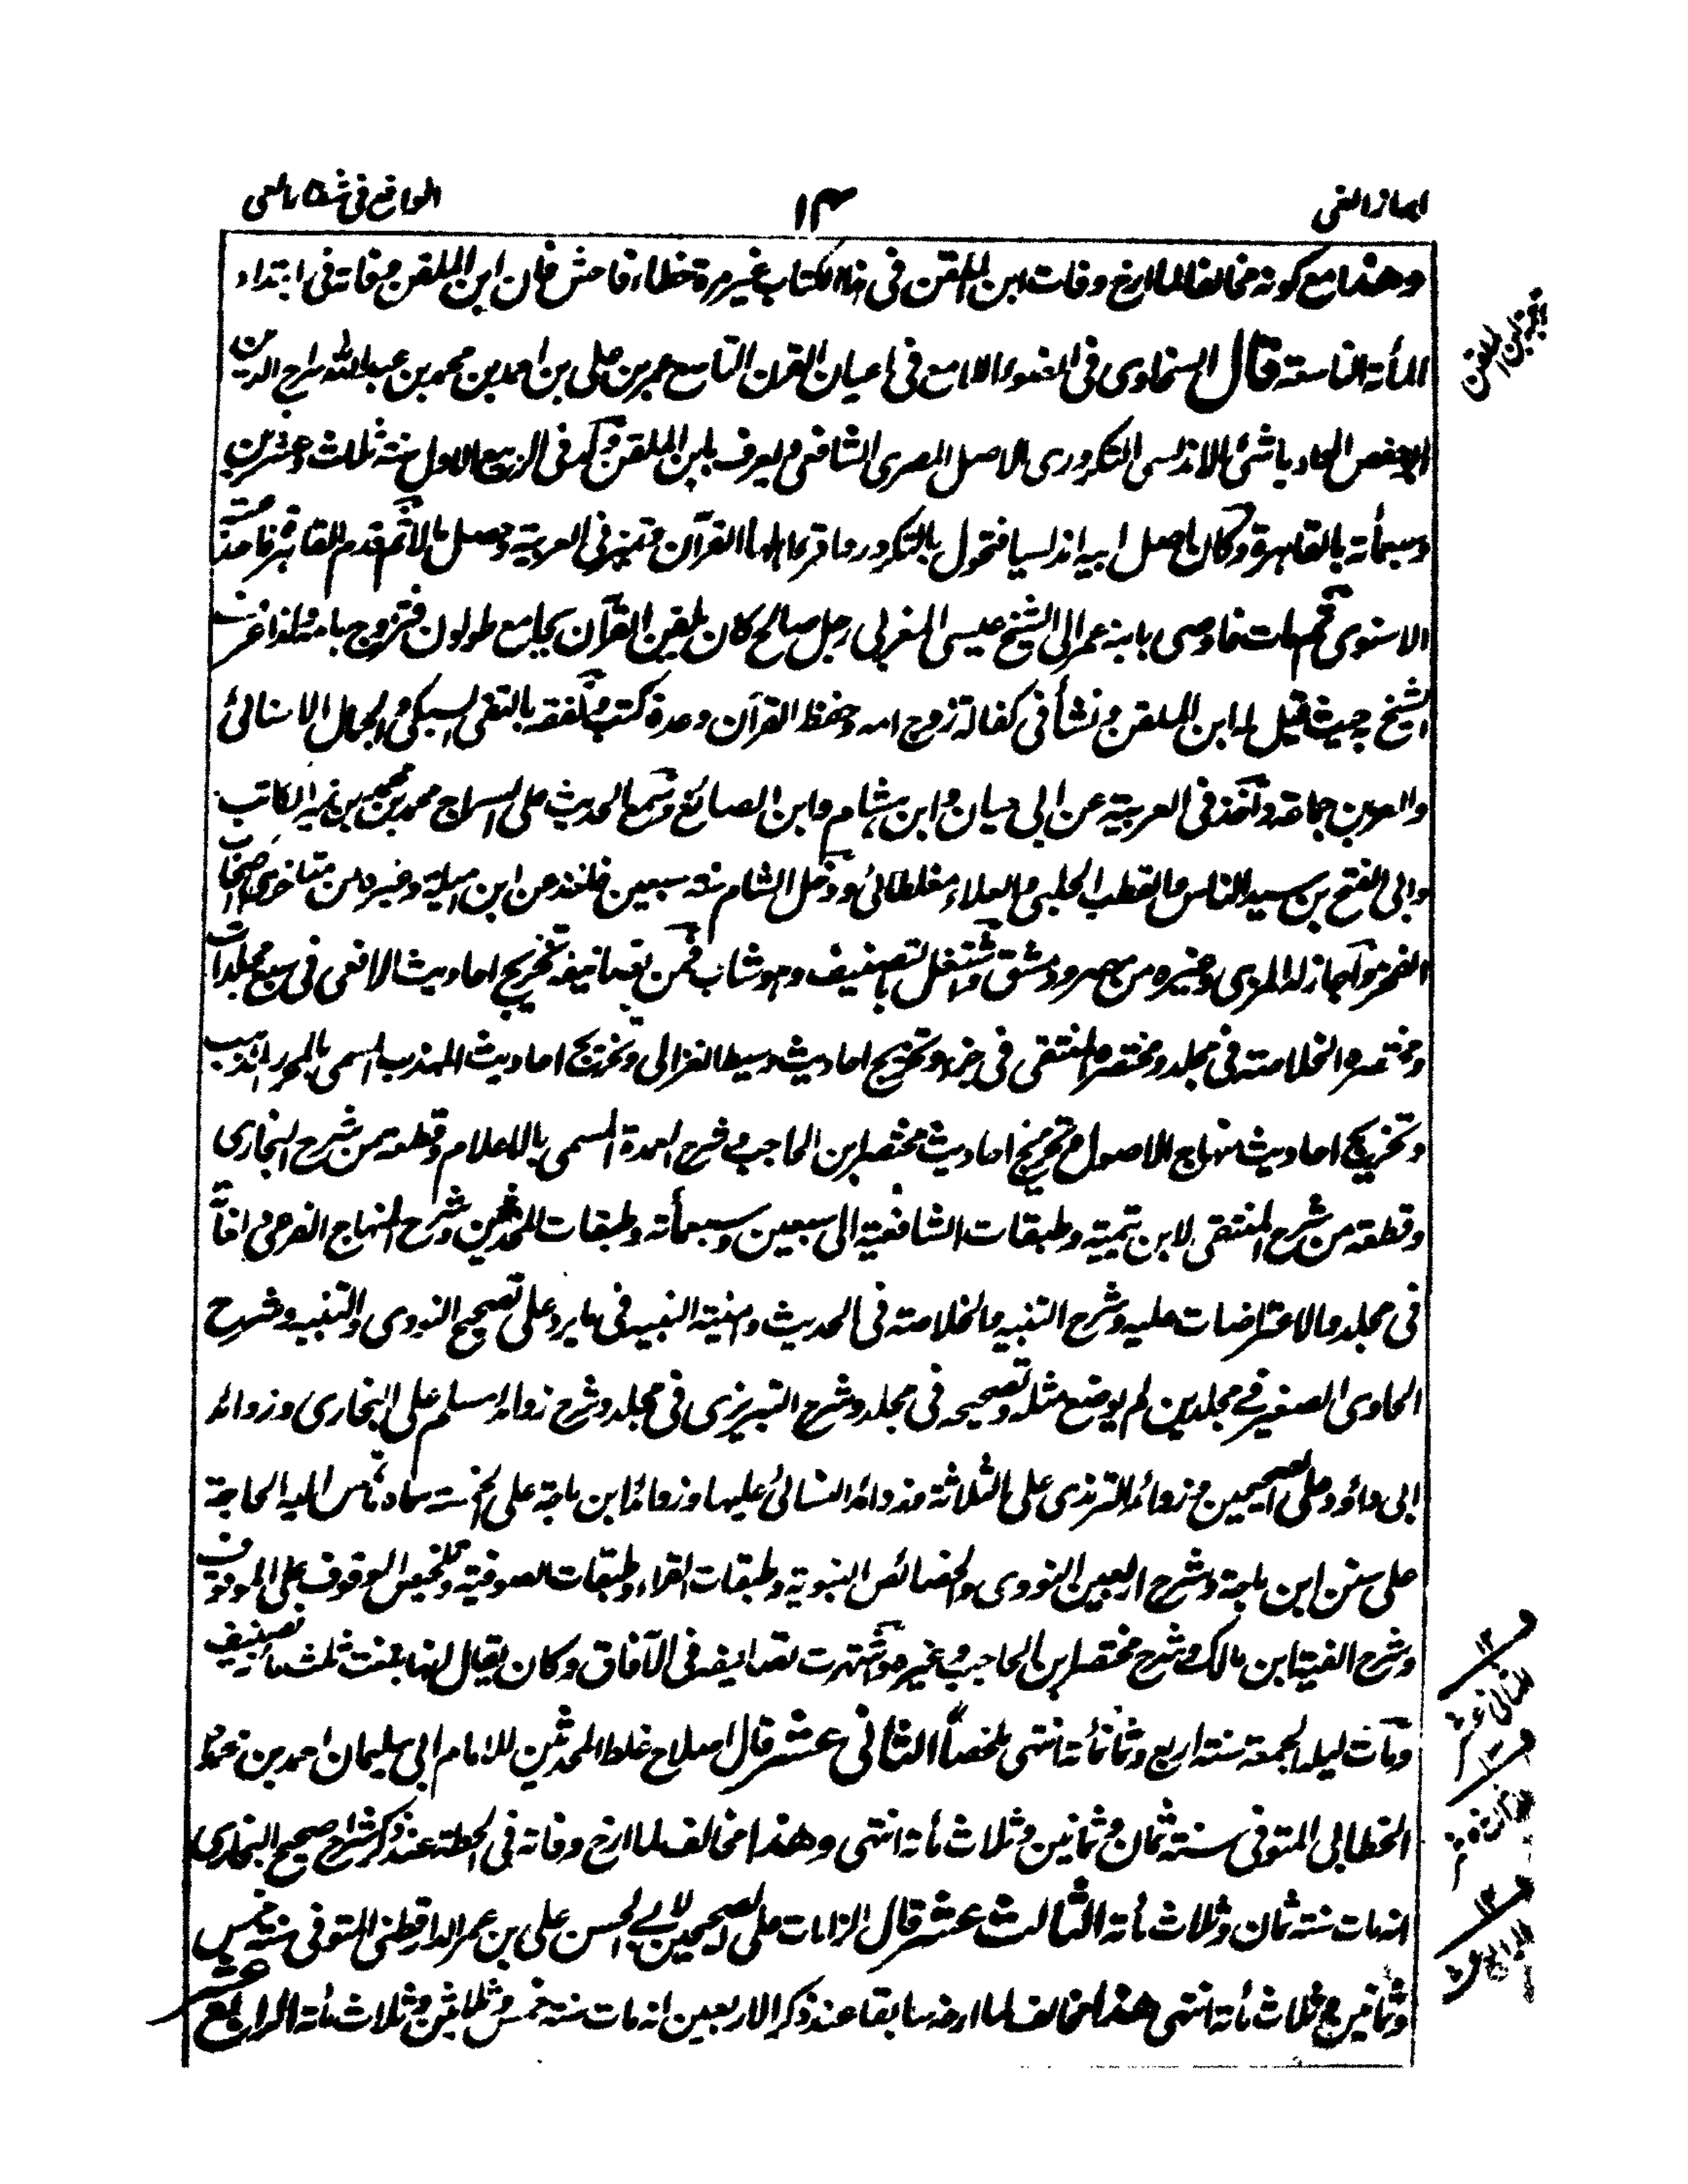 ابراز الغي
١٣
الواقع في شفاء العي
وهذا مع كونه مخالفا لما ارخ وفات ابن الملقن في هذا الكتاب غير مرة خطاء فاحش فان ابن الملقن وفاته في ابتداء
المأة التاسعة قال السخاوي في الضوء اللامع في اعيان القرن التاسع عمر بن علي بن احمد بن محمد بن عبد الله سراج الدين
ابو حفص الوادياشي الاندلسي التكروري الاصل المصري الشافعي ويعرف بابن الملقن ولد في الربيع الاول سنة ثلاث وعشرين
وسبعمأة بالقاهرة وكان اصل ابيه اندلسيا فتحول بالتكرور واقرء اهلها القرآن وتميز في العربية وحصل مالا ثم قدم القاهرة فاخذ
الاسنوي ثم مات فاوصى بابنه عمر الى الشيخ عيسى المغربي رجل صالح كان يلقن القرآن بجامع طولون فتزوج بامه ولذا عرف
الشيخ بحيث قيل له ابن الملقن ونشأ في كفالة زوج امه وحفظ القرآن وعدة كتب وتفقه بالتقي السبكي والجمال الاسنائي
والعز بن جماعة واخذ في العربية عن ابي حيان وابن هشام وابن الصائغ وسمع الحديث على السراج محمد بن محمد بن نمير الكاتب
وابي الفتح بن سيد الناس والقطب الحلبي والعلاء مغلطائي ودخل الشام سنة سبعين فاخذ عن ابن اميلة وغيره من متاخري اصحاب
الفخر واجاز له المزي وغيره من مصر ودمشق واشتغل بالتصنيف وهو شاب فمن تصانيفه تخريج احاديث الرافعي في سبع مجلدات
ومختصره الخلاصة في مجلد ومختصره المنتقى في جزء وتخريج احاديث وسيط الغزالي وتخريج احاديث المهذب المسمى بالمحرر المذهب
وتخريج احاديث منهاج الاصول وتخريج احاديث مختصر ابن الحاجب وشرح العمدة المسمى بالاعلام وقطعة من شرح البخاري
وقطعة من شرح المنتقى لابن تيمية وطبقات الشافعية الى سبعين وسبعمأة وطبقات المحدثين وشرح المنهاج الفرعي
في مجلد والاعتراضات عليه وشرح التنبيه والخلاصة في الحديث وامنية النبيه في ما يرد على تصحيح النووي والتنبيه وشرح
الحاوي الصغير في مجلدين لم يوضع مثله وتصحيحه في مجلد وشرح التبريزي في مجلد وشرح زوائد مسلم على البخاري وزوائد
ابي داؤد على الصحيحين وزوائد الترمذي على الثلاثة وزوائد النسائي عليها وزوائد ابن ماجة على الخمسة سماه ما تمس اليه الحاجة
على سنن ابن ماجة وشرح اربعين النووي والخصائص النبوية وطبقات القراء وطبقات الصوفية وتلخيص الوقوف على الموقوف
وشرح الفية ابن مالك وشرح مختصر ابن الحاجب وغيره واشتهرت تصانيفه في الآفاق وكان يقال انها بلغت ثلثمأة تصنيف
ومات ليلة الجمعة سنة اربع وثمانمأة انتهى ملخصاً الثاني عشر قال اصلاح غلط المحدثين للامام ابي سليمان احمد بن محمد
الخطابي المتوفى سنة ثمان وثمانين وثلاث مأة انتهى وهذا مخالف لما ارخ وفاته في الحطة عند ذكر شراح صحيح البخاري
انه مات سنة ثمان وثلاث مأة الثالث عشر قال الزامات على الصحيحين لابي الحسن علي بن عمر الدارقطني المتوفى سنة خمس
وثمانين وثلاث مأة انتهى هذا مخالف لما ارخه سابقا عند ذكر الاربعين انه مات سنة خمس وثلاثين وثلاث مأة الرابع عشر